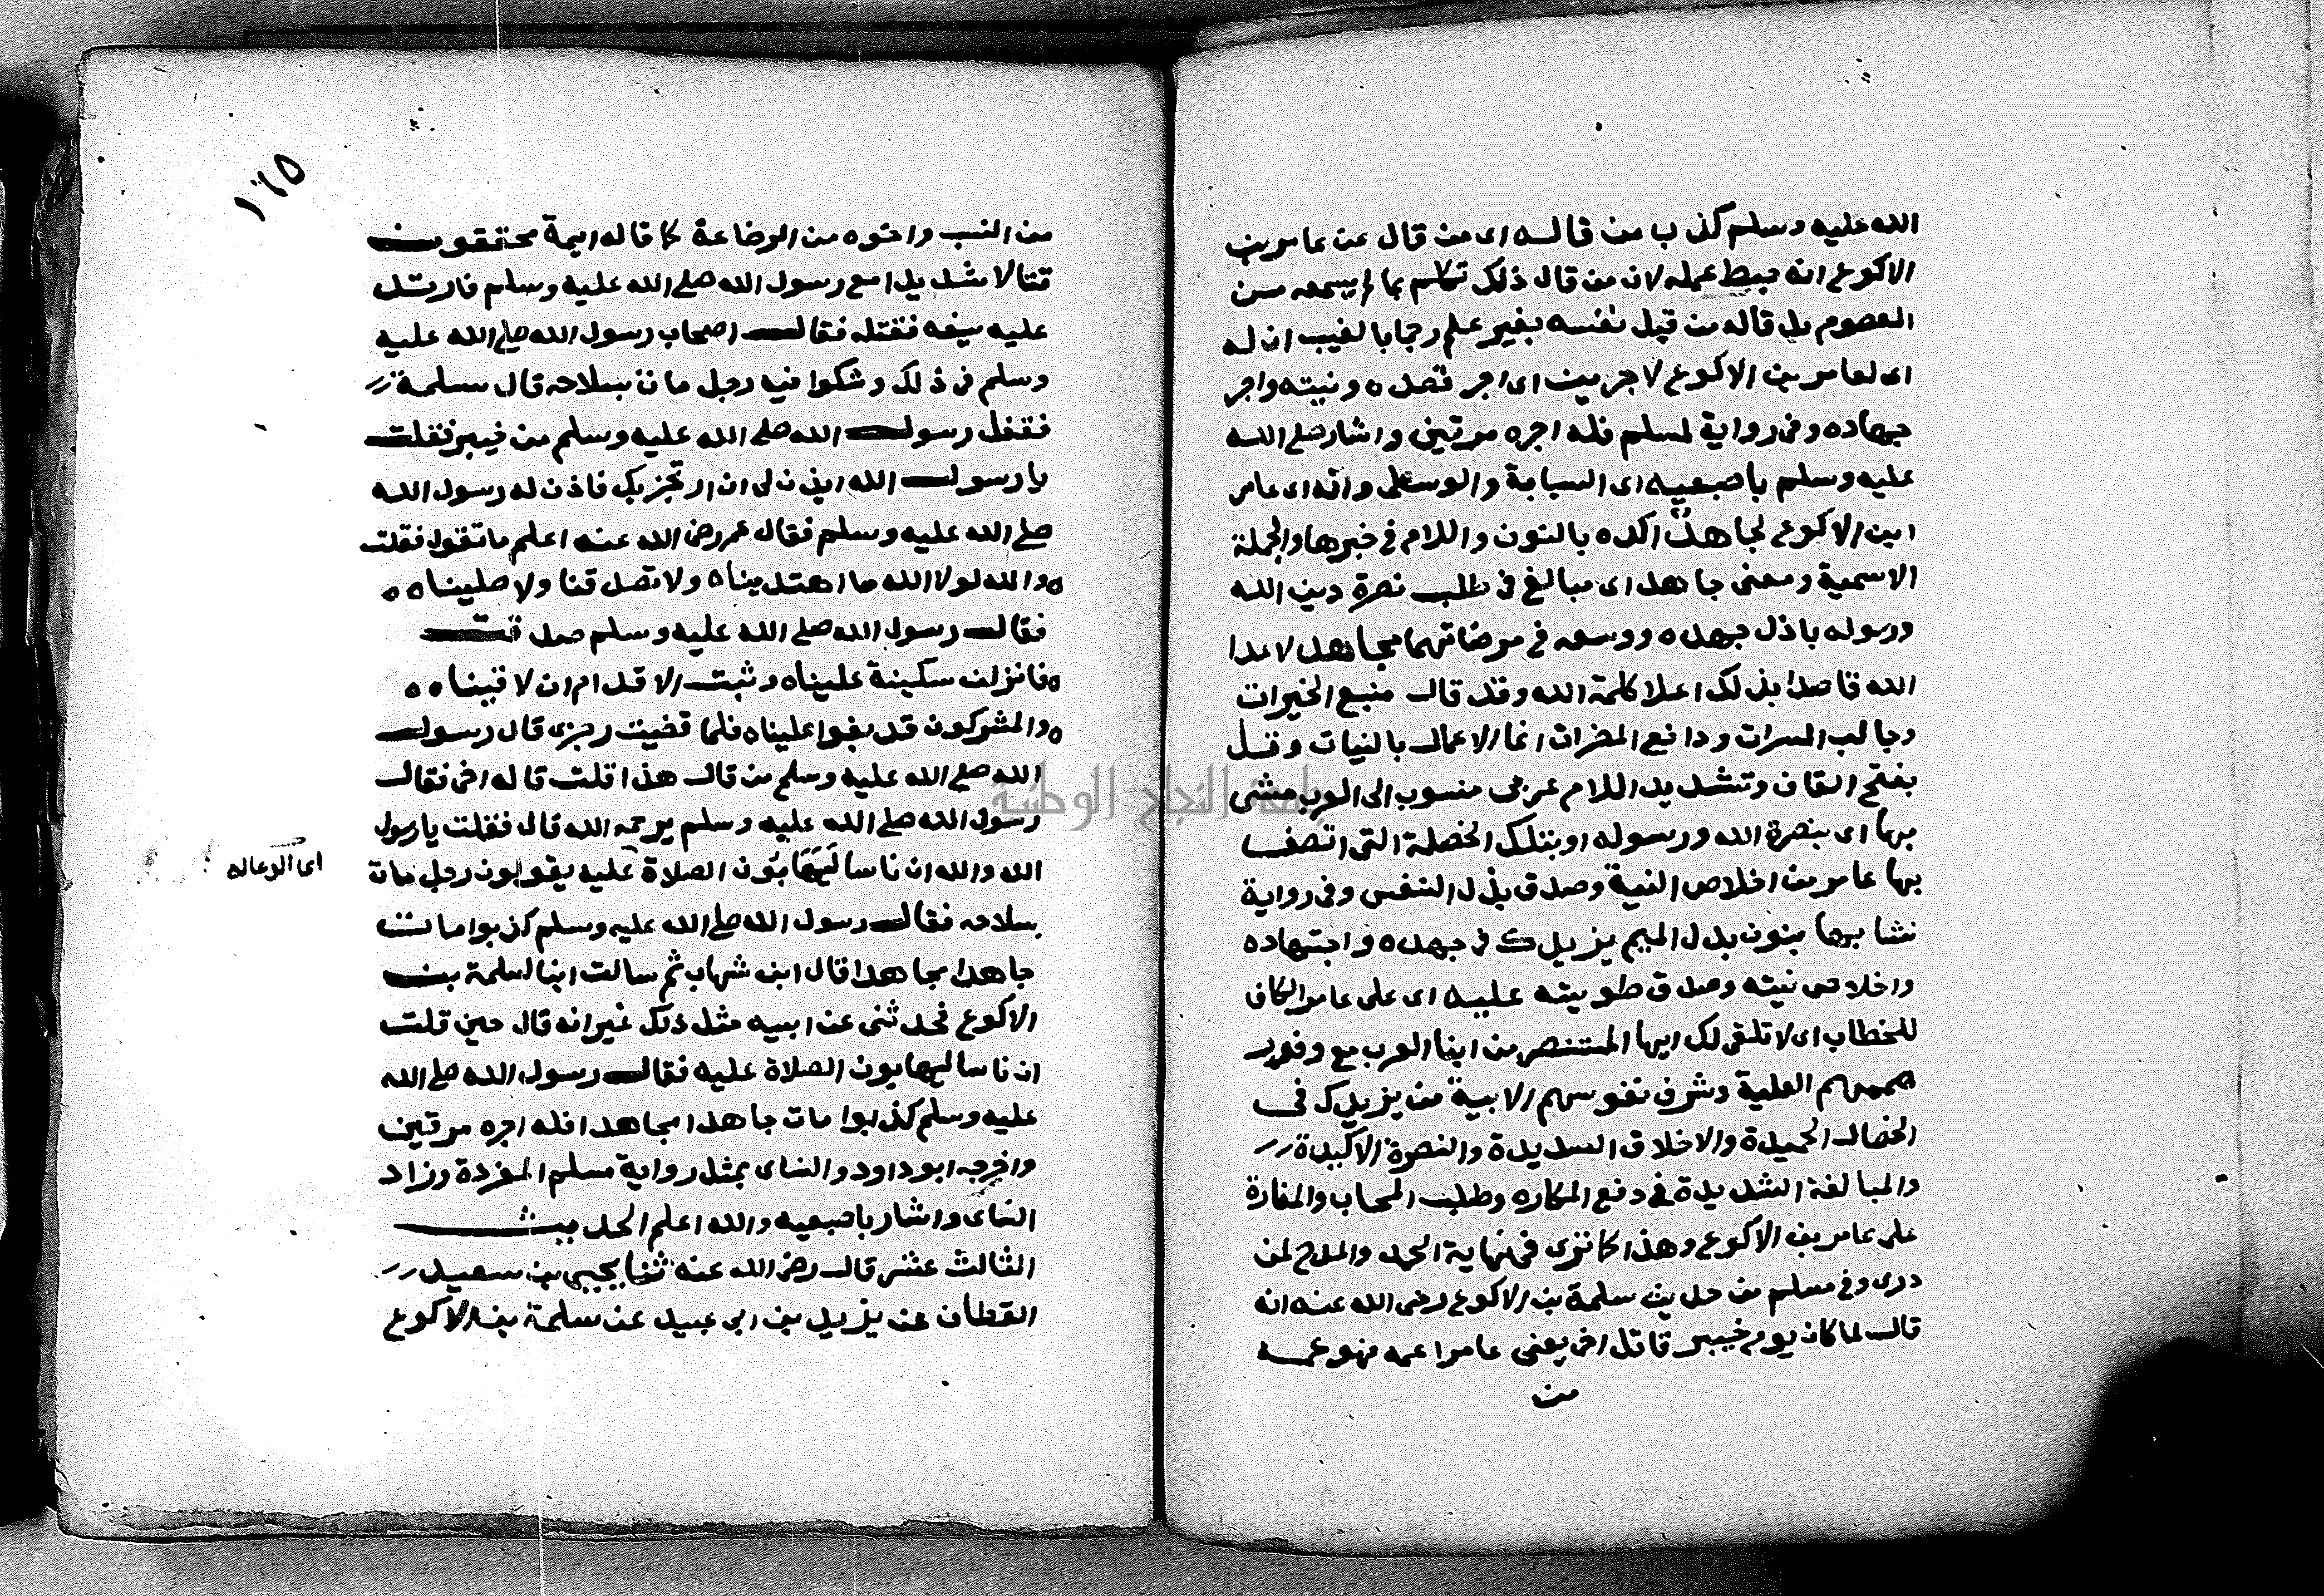 الله عليه وسلم كذب من قاله اى من قال عن عامر بن
الاكوع انه حبط عمله لان من قال ذلك تكلم بما لم يسمعه من
المعصوم بل قاله من قبل نفسه بغير علم رجما بالغيب ان له
اى لعامر بن الاكوع لاجرين اى اجر قصده ونيته واجر
جهاده وفى رواية لمسلم فله اجره مرتين واشار صلى الله
عليه وسلم باصبعيه اى السبابة والوسطى وانه اى عامر
ابن الاكوع لجاهد اكده بالنون واللام فى خبرها والجملة
الاسمية ومعنى جاهد اى مبالغ فى طلب نصرة دين الله
ورسوله باذل جهده ووسعه فى مرضاتهما مجاهد لاعدا
الله قاصدا بذلك اعلا كلمة الله وقد قال منبع الخيرات
وجالب المسرات ودافع المضرات انما الاعمال بالنيات وقل
بفتح القاف وتشديد اللام عربى منسوب الى العرب مشى
بها اى بنصرة الله ورسوله او بتلك الخصلة التى اتصف
بها عامر من اخلاص النية وصدق بذل النفس وفى رواية
نشا بها بنون بدل الميم يزيدك فى جهده واجتهاده
واخلاص نيته وصدق طويته عليه اى على عامر والكاف
للخطاب اى لا تلقى لك ايها المستنصر من ابنا العرب مع وفور
هممهم العلية وشرف نفوسهم الابية من يزيدك فى
الخصال الحميدة والاخلاق السديدة والنصرة الاكيدة
والمبالغة الشديدة فى دفع المكاره وطلب المحاب والمفارة
على عامر بن الاكوع وهذا كما ترى فى نهاية الحمد والمدح لمن
درى وفى مسلم من حديث سلمة بن الاكوع رضى الله عنه انه
قال لما كان يوم خيبر قاتل اخى يعنى عامرا عمه فهو عمه
من
١٦٥
من النسب واخوه من الرضاعة كما قاله ايمة محققون
قتالا شديدا مع رسول الله صلى الله عليه وسلم فارتد
عليه سيفه فقتله فقال اصحاب رسول الله صلى الله عليه
وسلم فى ذلك وشكوا فيه رجل مات بسلاحه قال سلمة
فقفل رسول الله صلى الله عليه وسلم من خيبر فقلت
يا رسول الله ايذن لى ان ارتجز بك فاذن له رسول الله
صلى الله عليه وسلم فقال عمر رضى الله عنه اعلم ما تقول فقلت
ه والله لولا الله ما اهتدينا ه ولا تصدقنا ولا صلينا ه ه
فقال رسول الله صلى الله عليه وسلم صدقت
ه فانزلن سكينة علينا ه وثبت الاقدام ان لاقينا ه ه
ه والمشركون قد بغوا علينا ه فلما قضيت رجزى قال رسول
الله صلى الله عليه وسلم من قال هذا قلت قاله اخى فقال
رسول الله صلى الله عليه وسلم يرحمه الله قال فقلت يا رسول
الله والله ان ناسا ليهابون الصلاة عليه يقولون رجل مات
بسلاحه فقال رسول الله صلى الله عليه وسلم كذبوا مات
جاهدا مجاهدا قال ابن شهاب ثم سالت ابنا لسلمة بن
الاكوع فحدثنى عن ابيه مثل ذلك غير انه قال حين قلت
ان ناسا ليهابون الصلاة عليه فقال رسول الله صلى الله
عليه وسلم كذبوا مات جاهدا مجاهدا فله اجره مرتين
واخرجه ابو داود والنساى بمثل رواية مسلم المفردة وزاد
النساى واشار باصبعيه والله اعلم الحديث
الثالث عشر قال رضى الله عنه ثنا يحيى بن سعيد
القطان عن يزيد بن ابى عبيد عن سلمة بن الاكوع
جامعة النجاح الوطنية